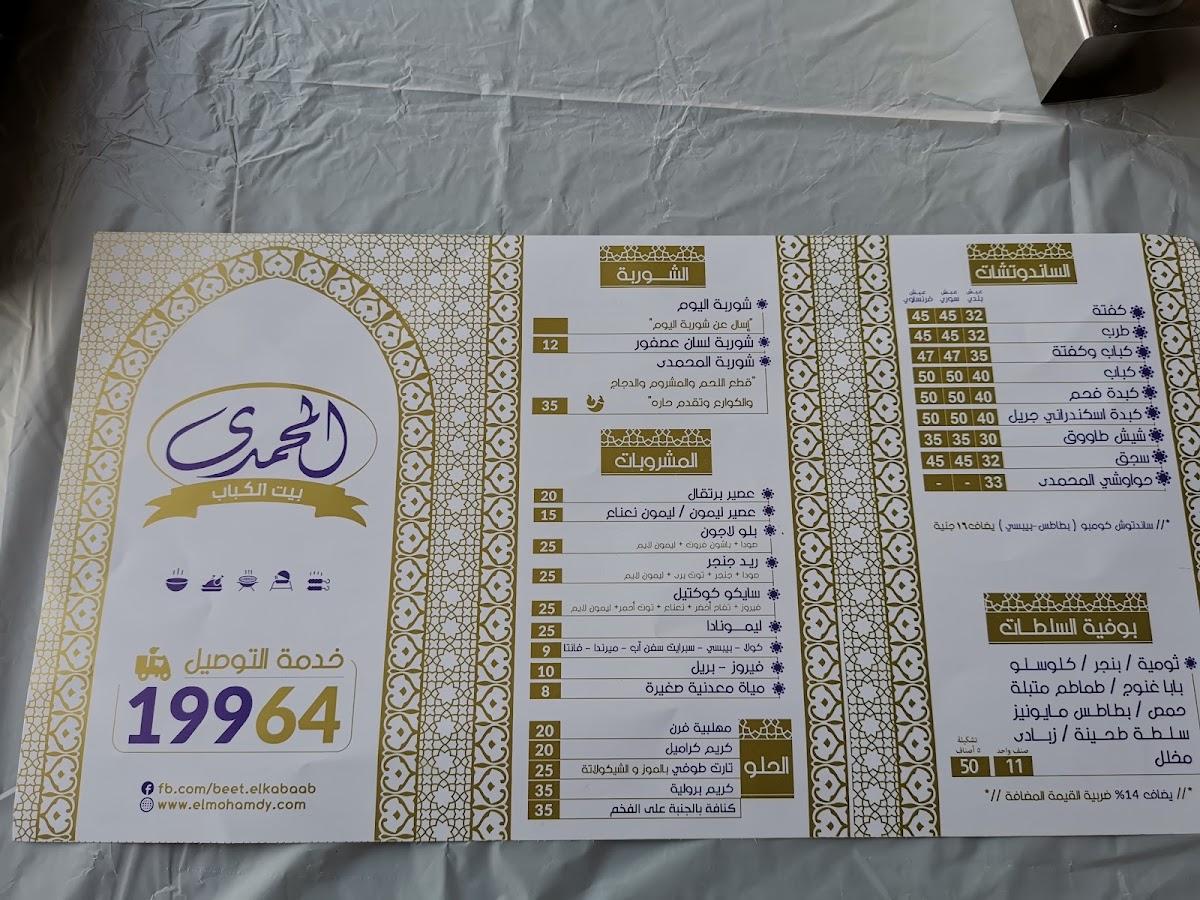 الساندوتشات
عيش بلدي عيش سوري عيش فرنساوي
كفتة 32 45 45
طرب 32 45 45
كباب وكفتة 35 47 47
كباب 40 50 50
كبدة فحم 40 50 50
كبدة اسكندراني جريل 40 50 50
شيش طاووق 30 35 35
سجق 32 45 45
حواوشي المحمدى 33 - -
*// ساندتوش كومبو ( بطاطس-بيبسي ) يضاف ١٦ جنية
بوفية السلطات
ثومية / بنجر / كلوسلو
بابا غنوج / طماطم متبلة
حمص / بطاطس مايونيز
سلطة طحينة / زبادى
مخلل
صنف واحد 11
تشكيلة ٥ أصناف 50
*// يضاف 14% ضريبية القيمة المضافة //*
الشوربة
شوربة اليوم
"إسال عن شوربة اليوم"
شوربة لسان عصفور 12
شوربة المحمدى
"قطع اللحم والمشروم والدجاج
والكوارع وتقدم حاره" 35
المشروبات
عصير برتقال 20
عصير ليمون / ليمون نعناع 15
بلو لاجون
صودا + باشون فروت + ليمون لايم 25
ريد جنجر
صودا + جنجر + توت برى + ليمون لايم 25
سايكو كوكتيل
فيروز + تفاح أخضر + نعناع + توت أحمر+ ليمون لايم 25
ليمونادا 25
كولا - بيبسي - سبرايت سفن أب - ميرندا - فانتا 9
فيروز - بريل 10
مياة معدنية صغيرة 8
الحلو
مهلبية فرن 20
كريم كراميل 20
تارت طوفي بالموز و الشيكولاتة 25
كريم برولية 35
كنافة بالجبنة على الفخم 35
المحمدى
بيت الكباب
خدمة التوصيل
19964
fb.com/beet.elkabaab
www.elmohamdy.com